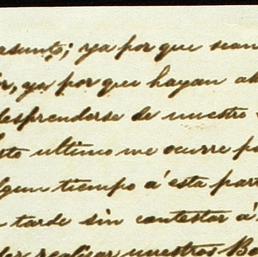 asunto; ya por que sean
ir, ya por que hayan
desprenderse de nuestro
sto ultimo me ocurre
lgun tiempo á esta part
tarde sin contestar á
realizar nuestros Bo